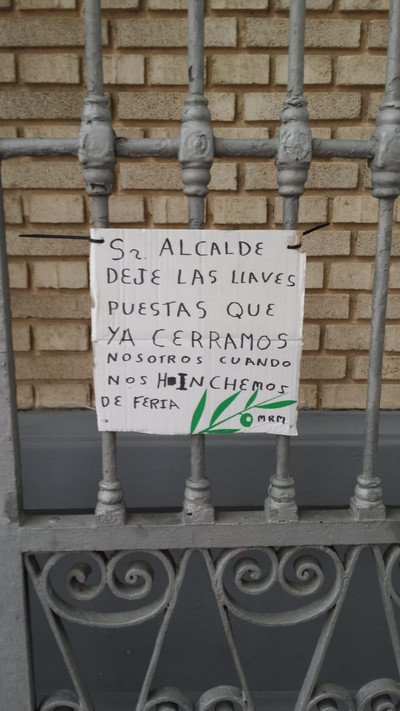 Sr. ALCALDE
DEJE LAS LLAVES
PUESTAS QUE
YA CERRAMOS
NOSOTROS CUANDO
NOS HINCHEMOS
DE FERIA
MRM